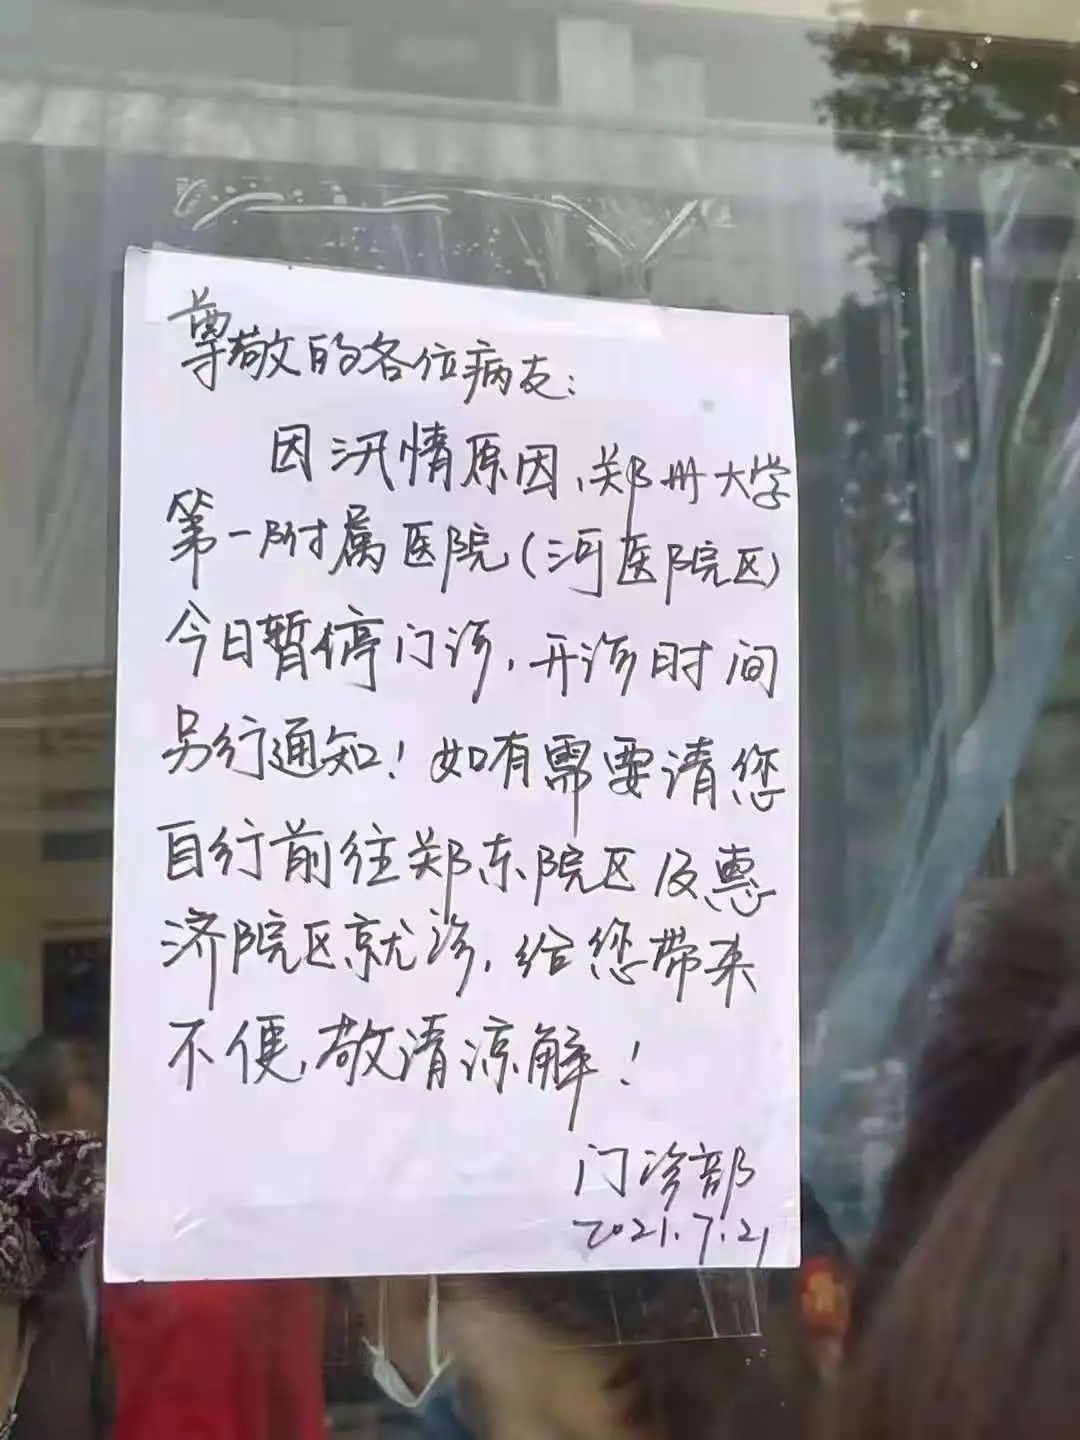 尊敬的各位病友：
因汛情原因、郑州大学
第一附属医院(河医院区)
今日暂停门诊，开诊时间
另行通知！如有需要请您
自行前往郑东院区及惠
济院区就诊，给您带来
不便、敬请谅解！
门诊部
2021.7.21